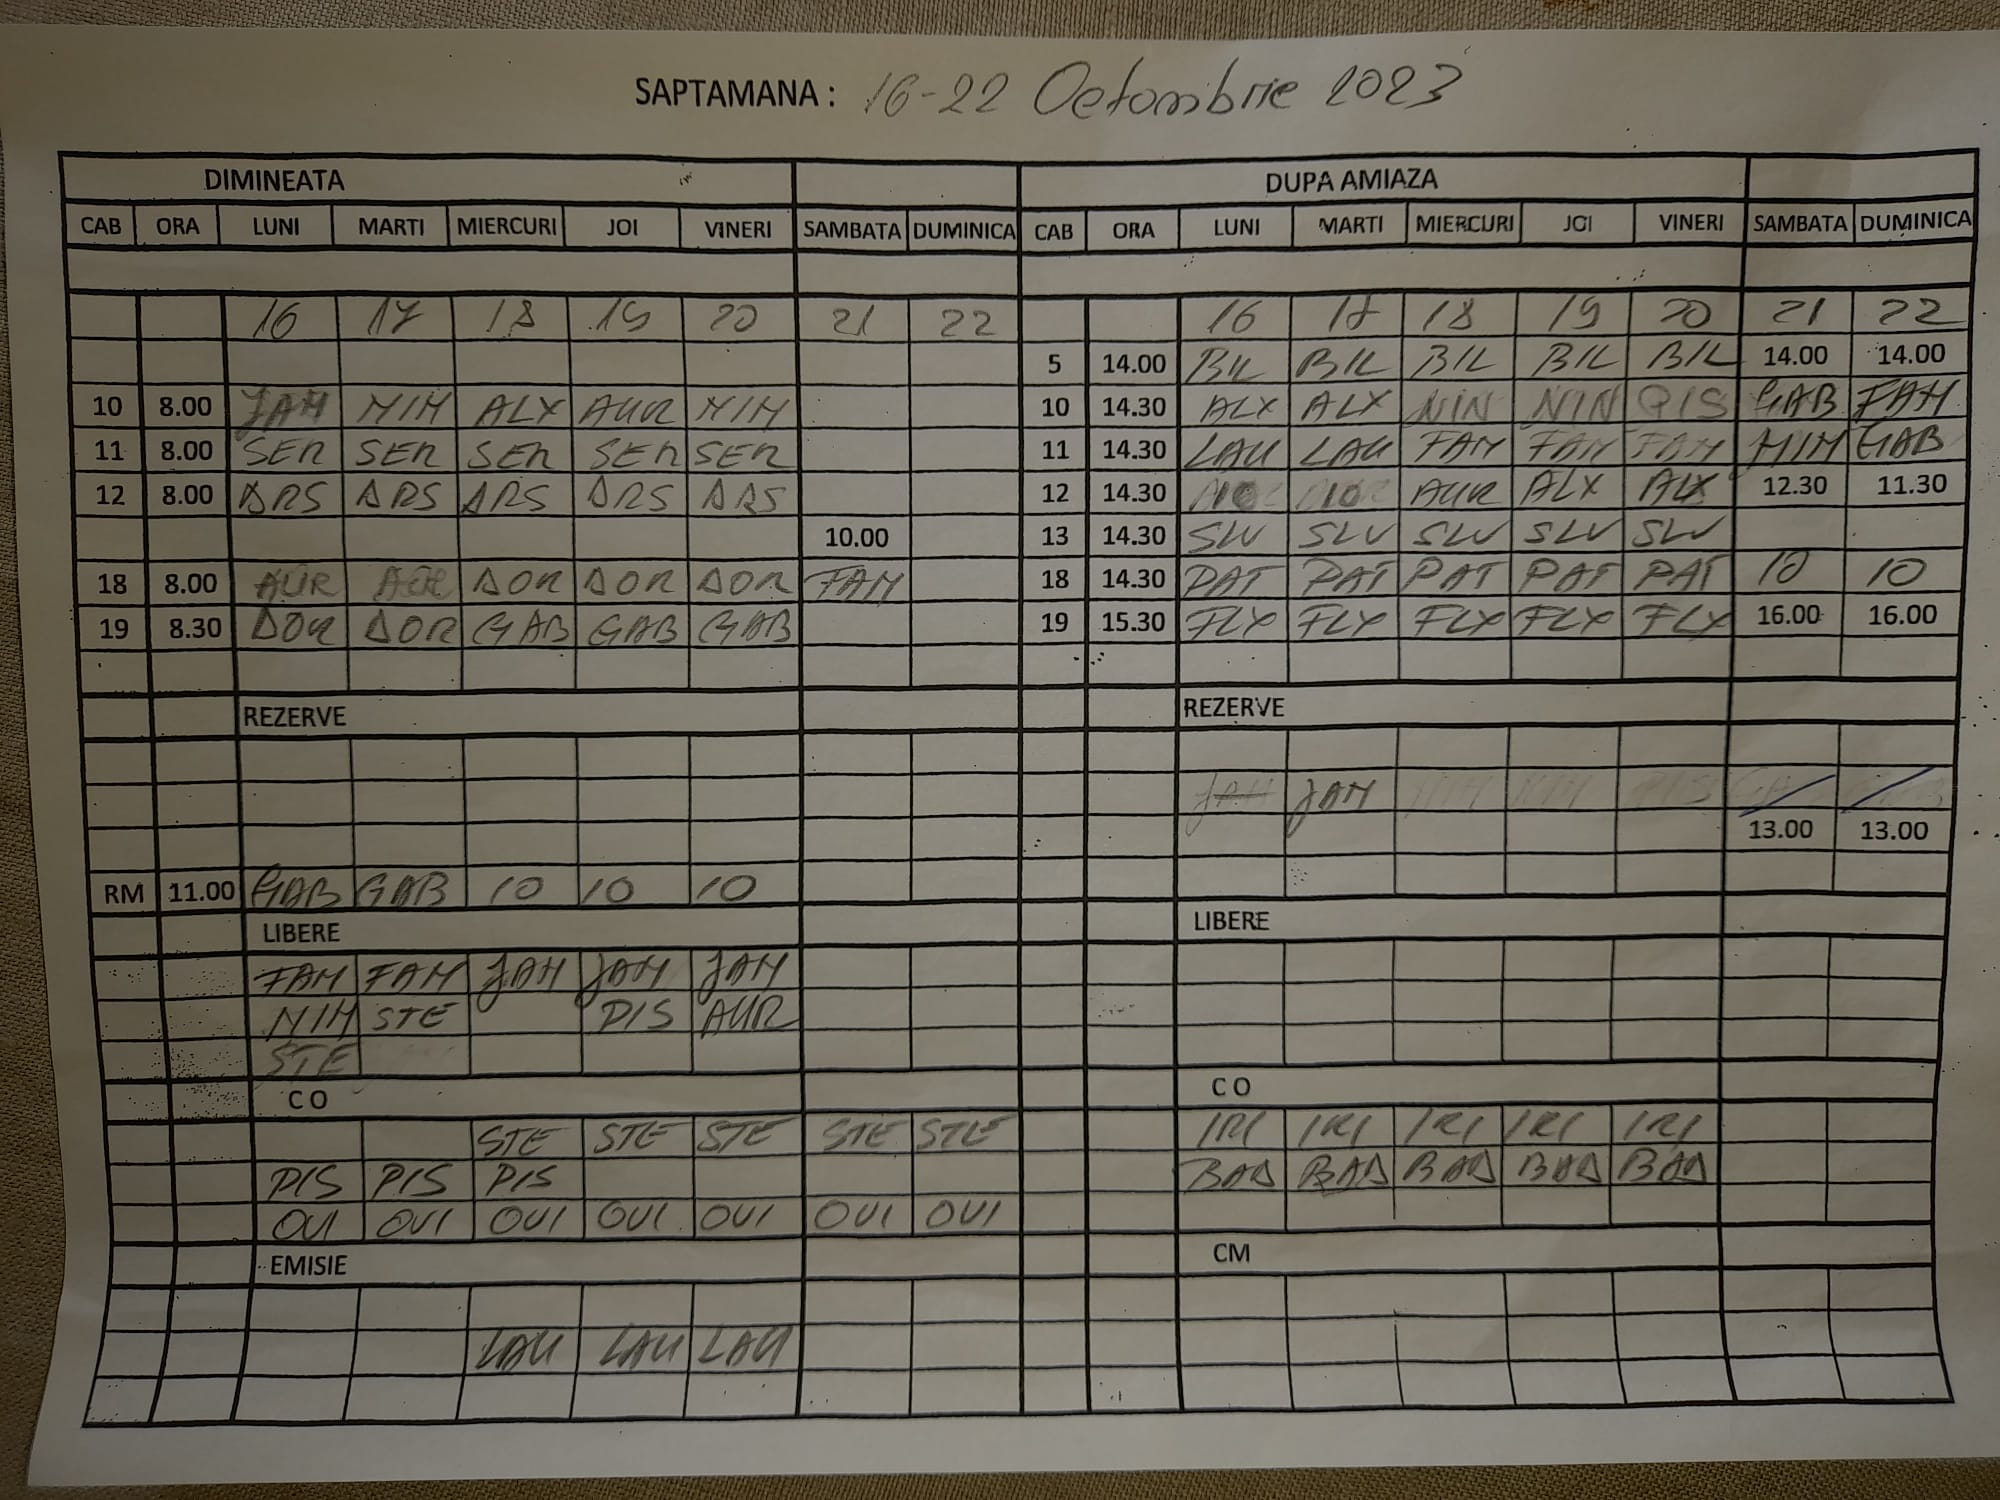 SAPTAMANA : 16-22 Octombrie 2023
DIMINEATA DUPA AMIAZA
CAB ORA LUNI MARTI MIERCURI JOI VINERI SAMBATA DUMINICA CAB ORA LUNI MARTI MIERCURI JOI VINERI SAMBATA DUMINICA
16 17 18 19 20 21 22 16 17 18 19 20 21 22
5 14.00 BIL BIL BIL BIL BIL 14.00 14.00
10 8.00 JAM MIH ALX AUR MIH 10 14.30 ALX ALX NIN NIN PIS GAB FAM
11 8.00 SER SER SER SER SER 11 14.30 LAU LAU FAM FAM FAM MIH GAB
12 8.00 DRS DRS DRS DRS DRS 12 14.30 10 10 AUR ALX ALX 12.30 11.30
10.00 13 14.30 SLV SLV SLV SLV SLV
18 8.00 AUR AUR DOR DOR DOR FAM 18 14.30 PAT PAT PAT PAT PAT 10 10
19 8.30 DOR DOR GAB GAB GAB 19 15.30 FLX FLX FLX FLX FLX 16.00 16.00
REZERVE REZERVE
JAM JAM
13.00 13.00
RM 11.00 GAB GAB 10 10 10
LIBERE LIBERE
FAM FAM JAM JAM JAM
MIH STE PIS AUR
STE
C O C O
STE STE STE STE STE IRI IRI IRI IRI IRI
PIS PIS PIS BAD BAD BAD BAD BAD
OUI OUI OUI OUI OUI OUI OUI
EMISIE CM
LAU LAU LAU